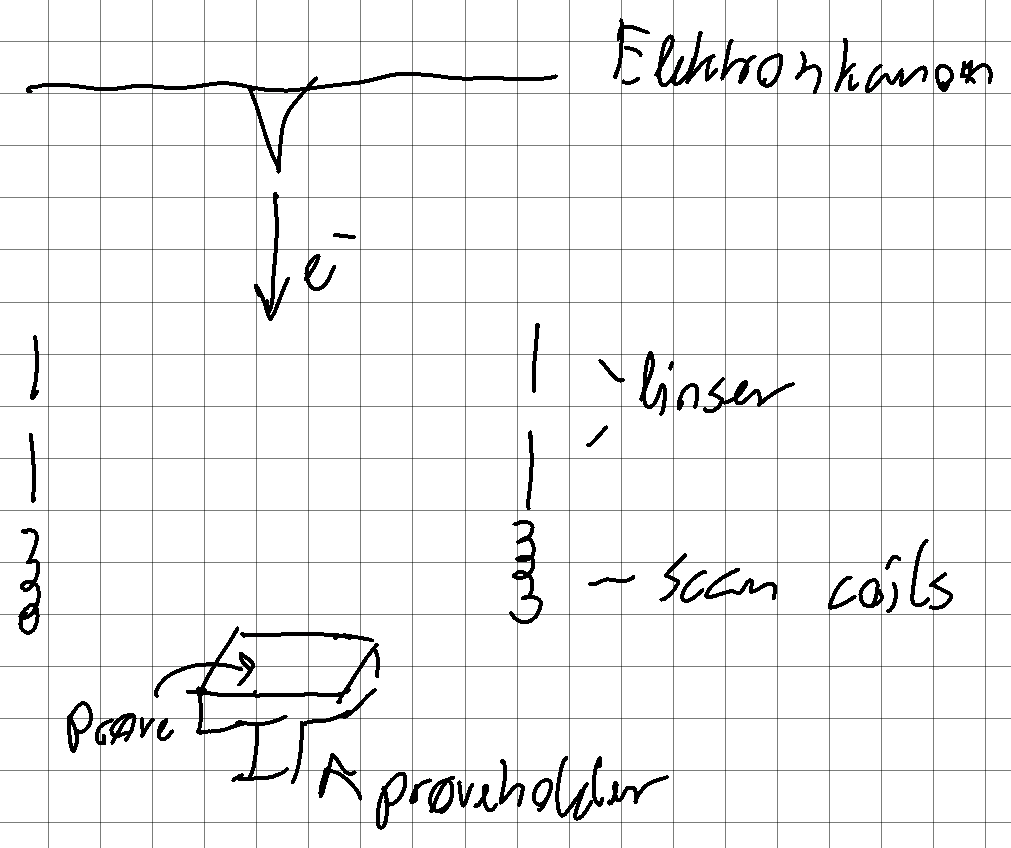 Elektronkanon
e⁻
linser
scan coils
Prøve
prøveholder